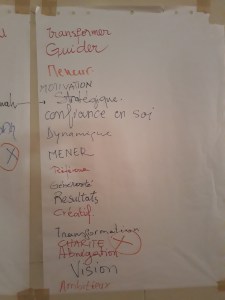 Transformer
Guider
Meneur
MOTIVATION
Stratégique
confiance en soi
Dynamique
MENER
Réseau
Générosité
Résultats
Créatif
Transformation
CHARITÉ
Abnégation
Vision